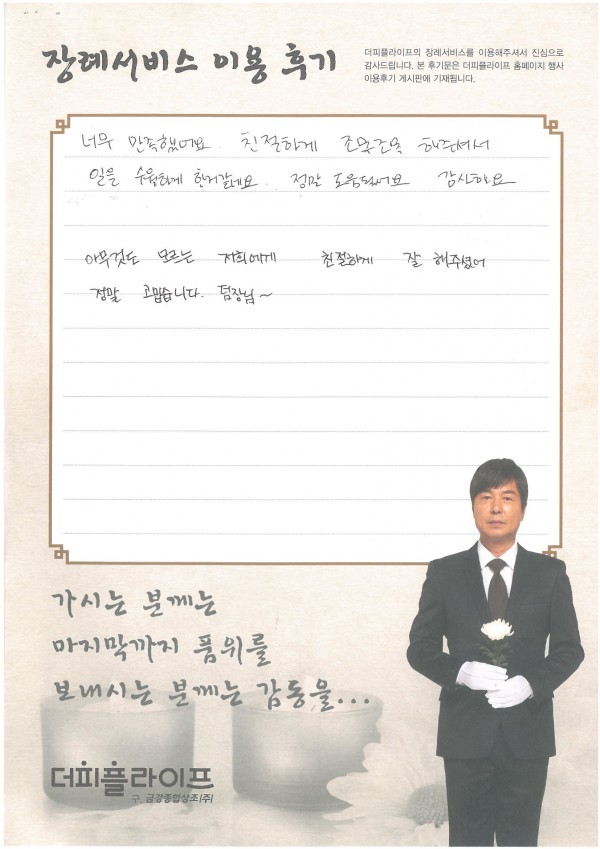 장례서비스 이용 후기
더피플라이프의 장례서비스를 이용해주셔서 진심으로
감사드립니다. 본 후기문은 더피플라이프 홈페이지 행사
이용후기 게시판에 기재됩니다.
너무 만족했어요. 친절하게 조목조목 해주셔서
일을 수월하게 한거같네요. 정말 도움되었어요 감사해요
아무것도 모르는 저희에게 친절하게 잘 해주셨어
정말 고맙습니다. 팀장님~
가시는 분께는
마지막까지 품위를
보내시는 분께는 감동을...
더피플라이프
구. 금강종합상조(주)